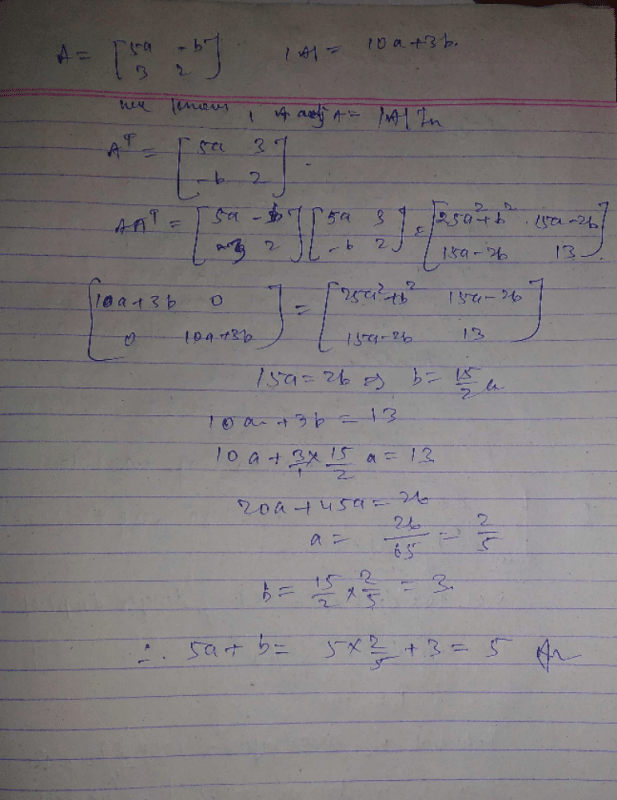 A = [5a -b 3 2] |A| = 10a+3b.
we know, A adj A = |A| In
Aᵀ = [5a 3 -b 2].
AAᵀ = [5a -b 3 2] [5a 3 -b 2] = [25a²+b² 15a-2b 15a-2b 13]
[10a+3b 0 0 10a+3b] = [25a²+b² 15a-2b 15a-2b 13]
15a=2b ⇒ b = 15/2 a
10a+3b = 13
10a + 3/1 × 15/2 a = 13
20a+45a = 26
a = 26/65 = 2/5
b = 15/2 × 2/5 = 3
∴ 5a+b = 5×2/5 +3 = 5 An